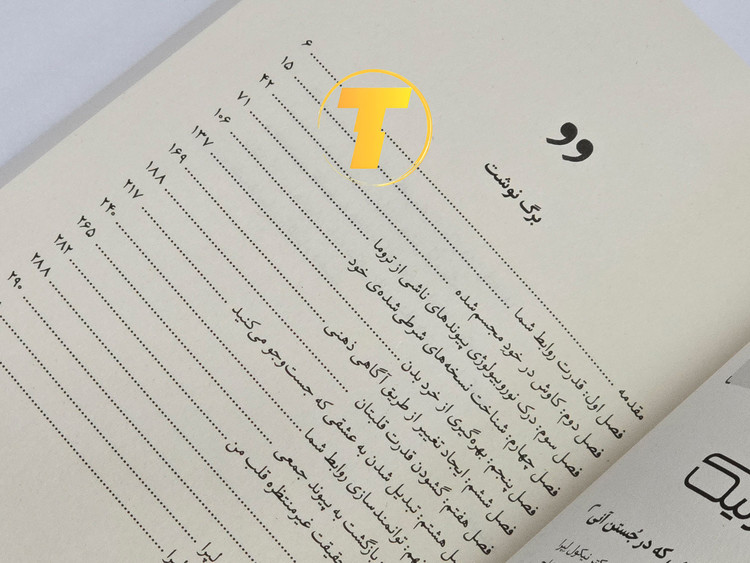 برگ نوشت
مقدمه ........ ۶
فصل اول: قدرت روابط شما ........ ۱۵
فصل دوم: کاوش در خود مجسم شده ........ ۴۲
فصل سوم: درک نوروبیولوژی پیوندهای ناشی از تروما ........ ۷۱
فصل چهارم: شناخت نسخه‌های شرطی شده‌ی خود ........ ۱۰۶
فصل پنجم: بهره‌گیری از خرد بدن ........ ۱۳۷
فصل ششم: ایجاد تغییر از طریق آگاهی ذهنی ........ ۱۶۹
فصل هفتم: گشودن قدرت قلبتان ........ ۱۸۸
هشتم: تبدیل شدن به عشقی که جست‌وجو می‌کنید ........ ۲۱۷
توانمندسازی روابط شما ........ ۲۴۰
بازگشت به پیوند جمعی ........ ۲۶۵
حقیقت غیرمنتظره قلب من ........ ۲۸۲
لپرا ........ ۲۸۸
........ ۲۹۰
که در جُستن آنی)
نیکول لپرا
T